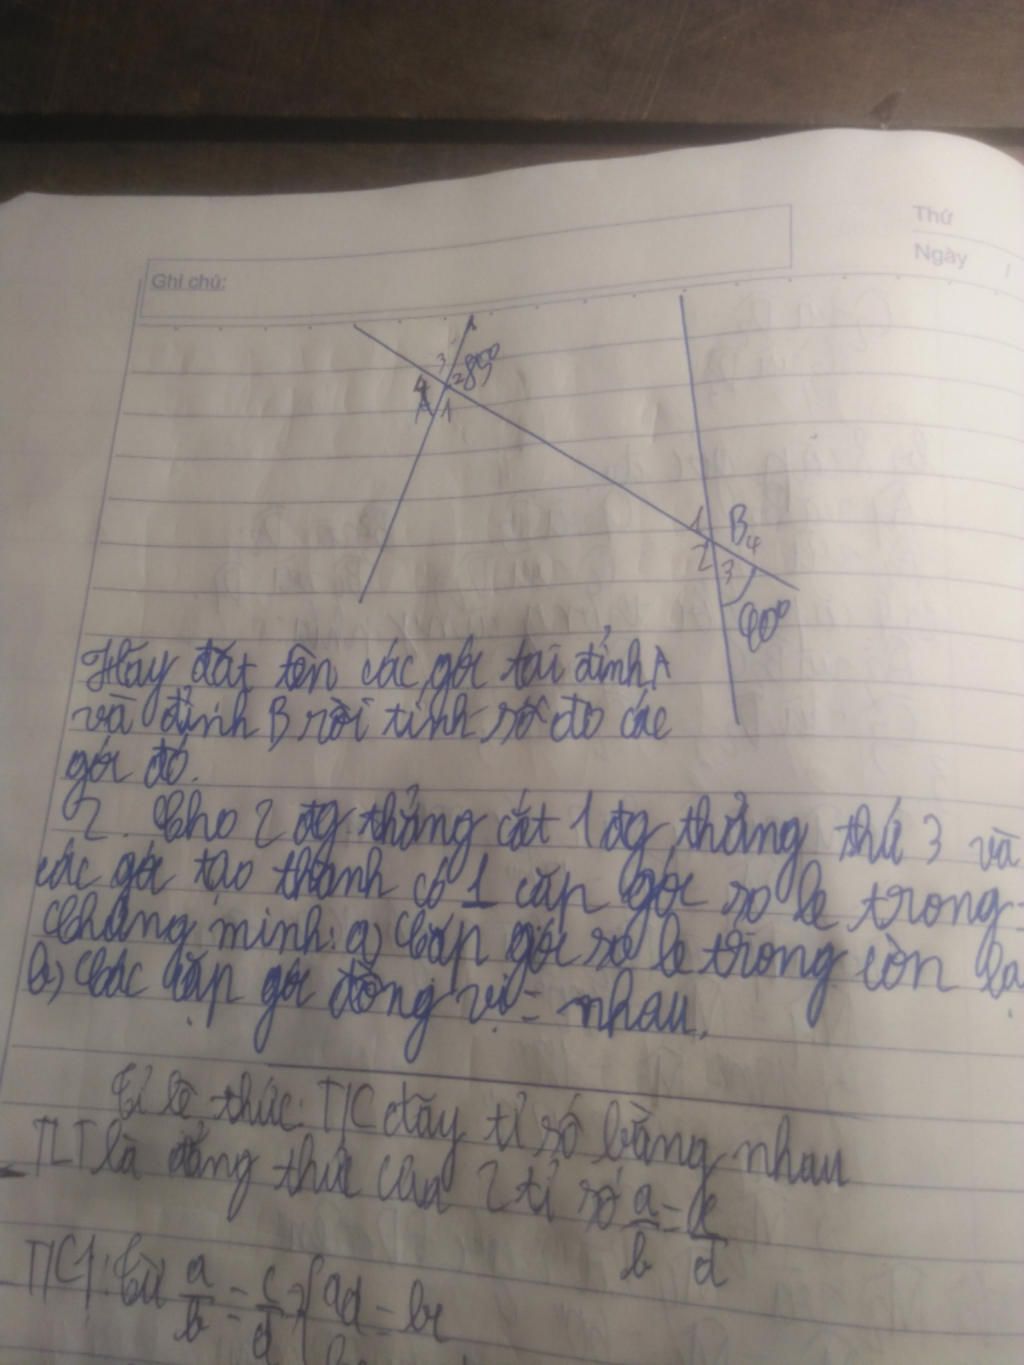 Thứ
Ngày
Ghi chú:
3
4
2
85°
A
1
1
B
4
2
3
40°
Hãy đặt tên các góc tại đỉnh A
và đỉnh B rồi tính số đo các
góc đó.
2. Cho 2 đg thẳng cắt 1 đg thẳng thứ 3 và
các góc tạo thành có 1 cặp góc so le trong =
Chứng minh: a) Cặp góc so le trong còn
b) Các cặp góc đồng vị = nhau.
Tỉ lệ thức. T/C dãy tỉ số bằng nhau
TLT là đẳng thức của 2 tỉ số a/b = c/d
T/C1: Từ a/b = c/d ad = bc